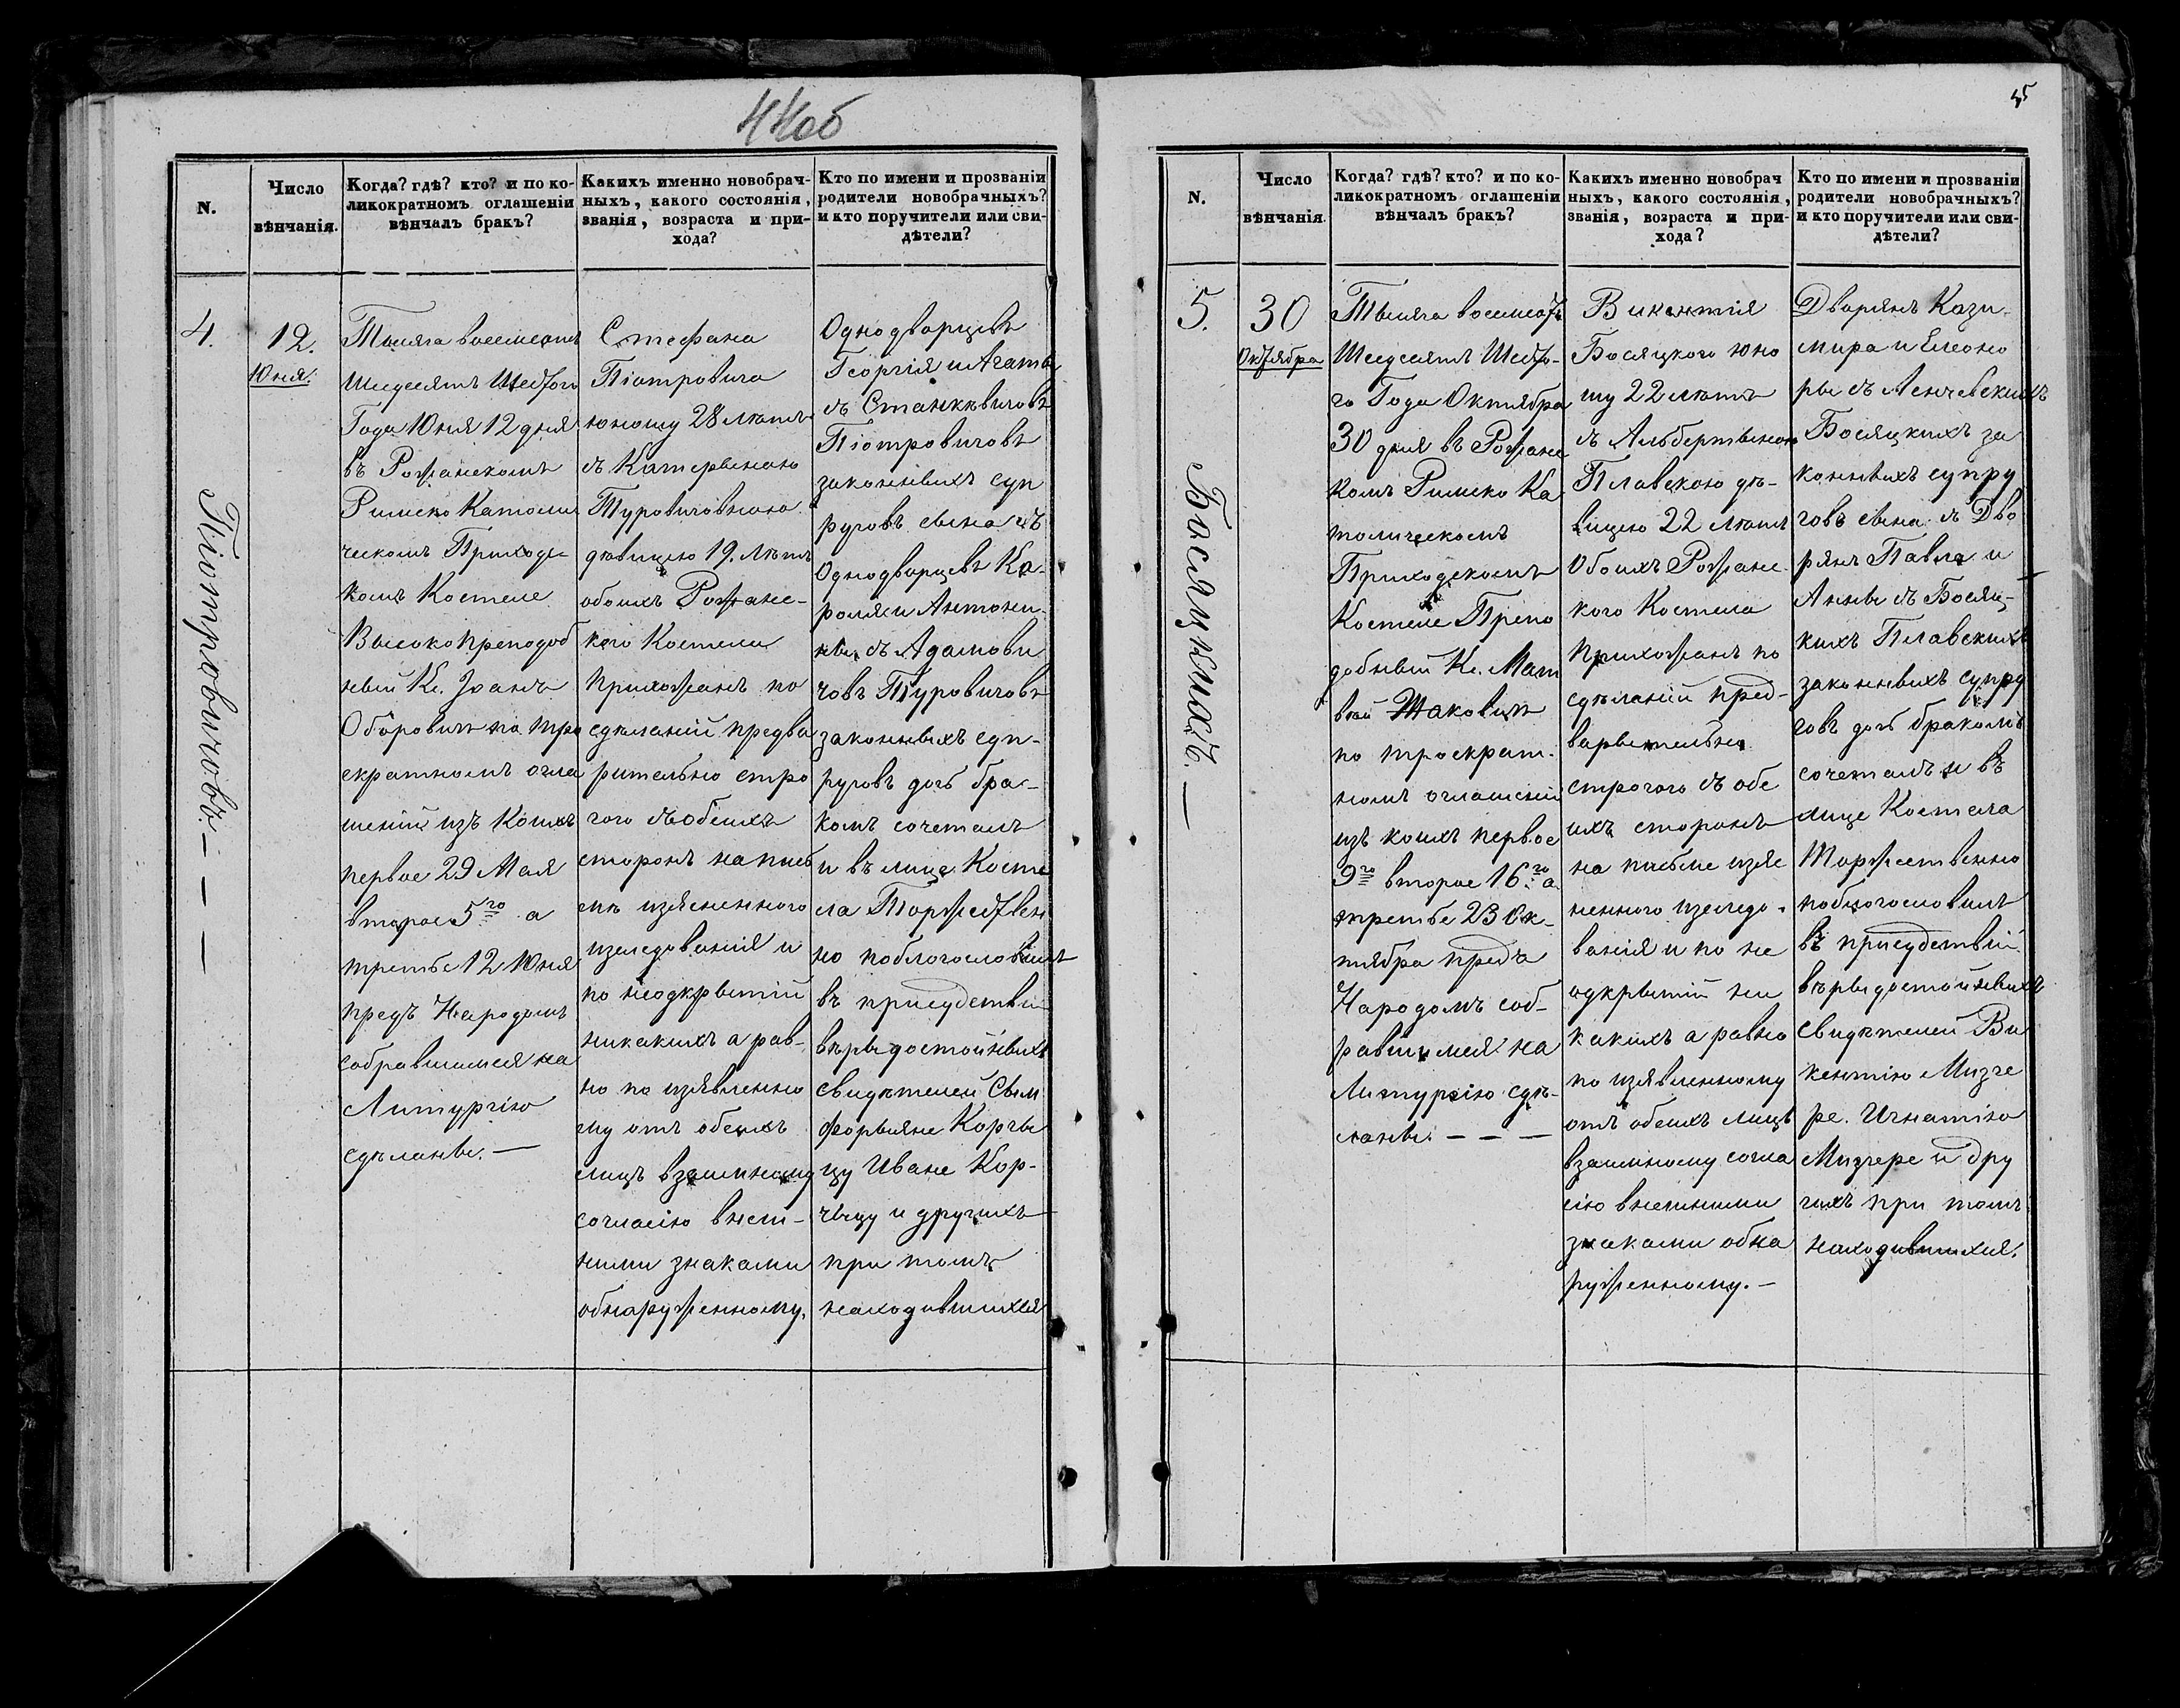 44об
N.
Число
вѣнчанія.
Когда? гдѣ? кто? и по ко-
ликократномъ оглашеніи
вѣнчалъ бракъ?
Какихъ именно новобрач-
ныхъ, какого состоянія,
званія, возраста и при-
хода?
Кто по имени и прозваніи
родители новобрачныхъ?
и кто поручители или сви-
дѣтели?
4.
Піотровичовъ. — — —
12.
Юня.
Тысяча восемсотъ
Шесдесятъ Шестого
Года Юня 12 дня
въ Рожанскомъ
Римско Католи
ческомъ Приходс
комъ Костеле
Высокопреподоб
ный Кс. Іоанъ
Оборовичъ по тро
екратномъ огла
шеніи изъ коихъ
первое 29 Мая
второе 5го а
третье 12 Юня
предъ Народомъ
собравшимся на
Литургію
сдѣланы. —
Стефана
Піотровича
юношу 28 лѣтъ
съ Катерыною
Туровичовною
дѣвицею 19. лѣтъ
обоихъ Рожанс-
кого Костела
прихожанъ по
сдѣланіи предва
рительно стро
гого съобеихъ
сторонъ на пись
мѣ изясненного
изследованія и
по неодкрытіи
никакихъ а рав-
но по изявленно
му отъ обеихъ
лицъ взаимному
согласію внеш-
ними знаками
обнаруженному.
Однодворцевъ
Георгія и Агаты
съ Станкевичовъ
Піотровичовъ
законныхъ суп
руговъ сына съ
Однодворцевъ Ка-
роля и Антони-
ны съ Адамови
човъ Туровичовъ
законныхъ суп-
руговъ дочь бра-
комъ сочеталъ
и въ лице Косте
ла Торжествен
но поблогословилъ
въ присудствіи
вѣрыдостойныхъ
свидѣтелей Сым
форыяне Корчы
цу Иване Кор-
чыцу и другихъ
при томъ
находившихся
45
N.
Число
вѣнчанія.
Когда? гдѣ? кто? и по ко-
ликократномъ оглашеніи
вѣнчалъ бракъ?
Какихъ именно новобрач
ныхъ, какого состоянія,
званія, возраста и при-
хода?
Кто по имени и прозваніи
родители новобрачныхъ?
и кто поручители или сви-
дѣтели?
5.
Босяцкихъ. —
30
Октября
Тысяча восемсотъ
Шесдесятъ Шесто-
го Года Октября
30 дня въ Рожанс
комъ Римско Ка
толическомъ
Приходскомъ
Костеле Препо
добный Кс. Мат
вей Жаковичъ
по троекрат-
номъ оглашеніи
изъ коихъ первое
9го второе 16го а
третье 23 Ок-
тября предъ
Народомъ соб-
равшимся на
Литургію сдѣ-
ланы. — — —
Викентія
Босяцкого юно
шу 22 лѣтъ
съ Альбертыною
Плавскою дѣ-
вицею 22 лѣтъ
Обоихъ Рожанс-
кого Костела
прихожанъ по
сдѣланіи пред-
варытельно
строгого съ обе
ихъ сторонъ
на письме изяс
ненного изследо-
ванія и по не
одкрытіи ни
какихъ а равно
по изявленному
отъ обеихъ лицъ
взаимному согла
сію внешними
знаками обна
руженному. —
Дворянъ Кази-
мира и Елеоно
ры съ Ленчевскихъ
Босяцкихъ за
конныхъ супру
говъ сына съ Дво
рянъ Павла и
Анны съ Босяц-
кихъ Плавскихъ
законныхъ супру
говъ дочь бракомъ
сочеталъ и въ
лице Костела
Торжественно
поблогословилъ
въ присудствіи
вѣрыдостойныхъ
свидѣтелей Ви
кентію Мизге
ре. Игнатію
Мизгере и дру
гихъ при томъ
находившихся.